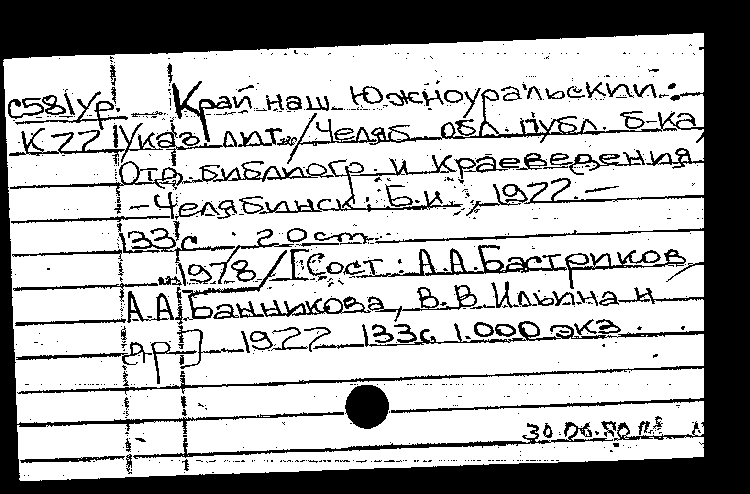 с58/Ур. Край наш Южноуральский:
К 77 Указ. лит../Челяб. обл. публ. б-ка,
Отд. библиогр. и краеведения
-Челябинск: Б.и., 1977.-
133с. 20 cm
1978/[Сост.: А.А.Бастриков,
А.А.Банникова, В.В.Ильина и
др] 1977 133с. 1.000 экз.
30.06.80